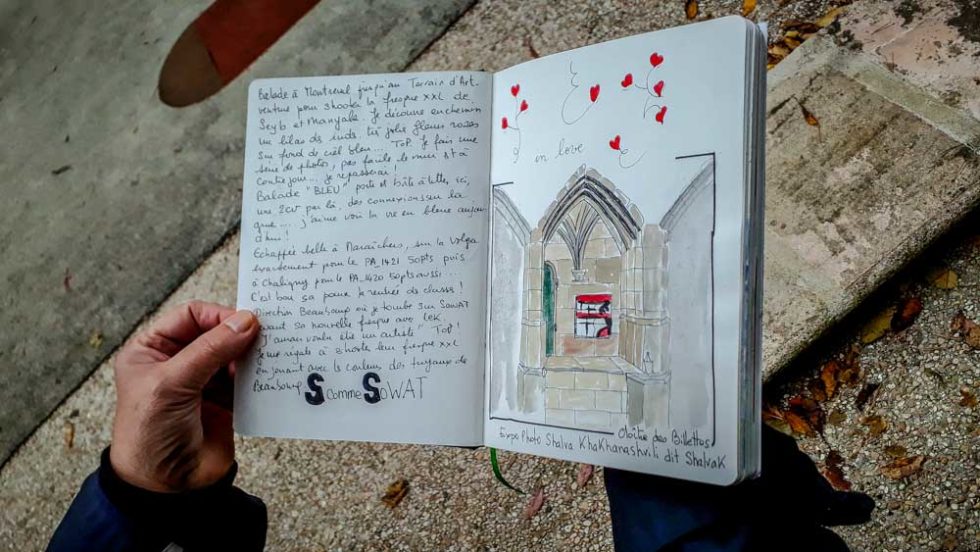 Balade à Montreuil jusqu'au Terrain d'Art-
venture pour shooter la fresque XXL de
Seyb et Manyak. Je découvre en chemin
un lilas des indes. très jolies fleurs roses
sur fond de ciel bleu... ToP. Je fais une
série de photo, pas facile le mur st à
contre jour... je repasserai.
Balade "BLEU" porte et boîte à lettres, ici,
une 2CV par là, des connexions sur la
... j'aime voir la vie en bleue aujour-
d'hui!
Echappée belle à Maraîchers, sur la Volga
exactement pour le PA_1421 50pts puis
à Chaligny pour le PA_1420 50pts aussi...
C'est bon ça pour la rentrée de classe!
Direction Beaubourg où je tombe sur Sowat
avant sa nouvelle fresque avec Lek.
"J'aurai voulu être un artiste" ToP!
Je me régale à shooter leur fresque XXL
en jouant avec les couleurs des tuyaux de
Beaubourg
S comme SOWAT
in love
Cloître des Billettes
Expo Photo Shalva Khakhanashvili dit Shalvak